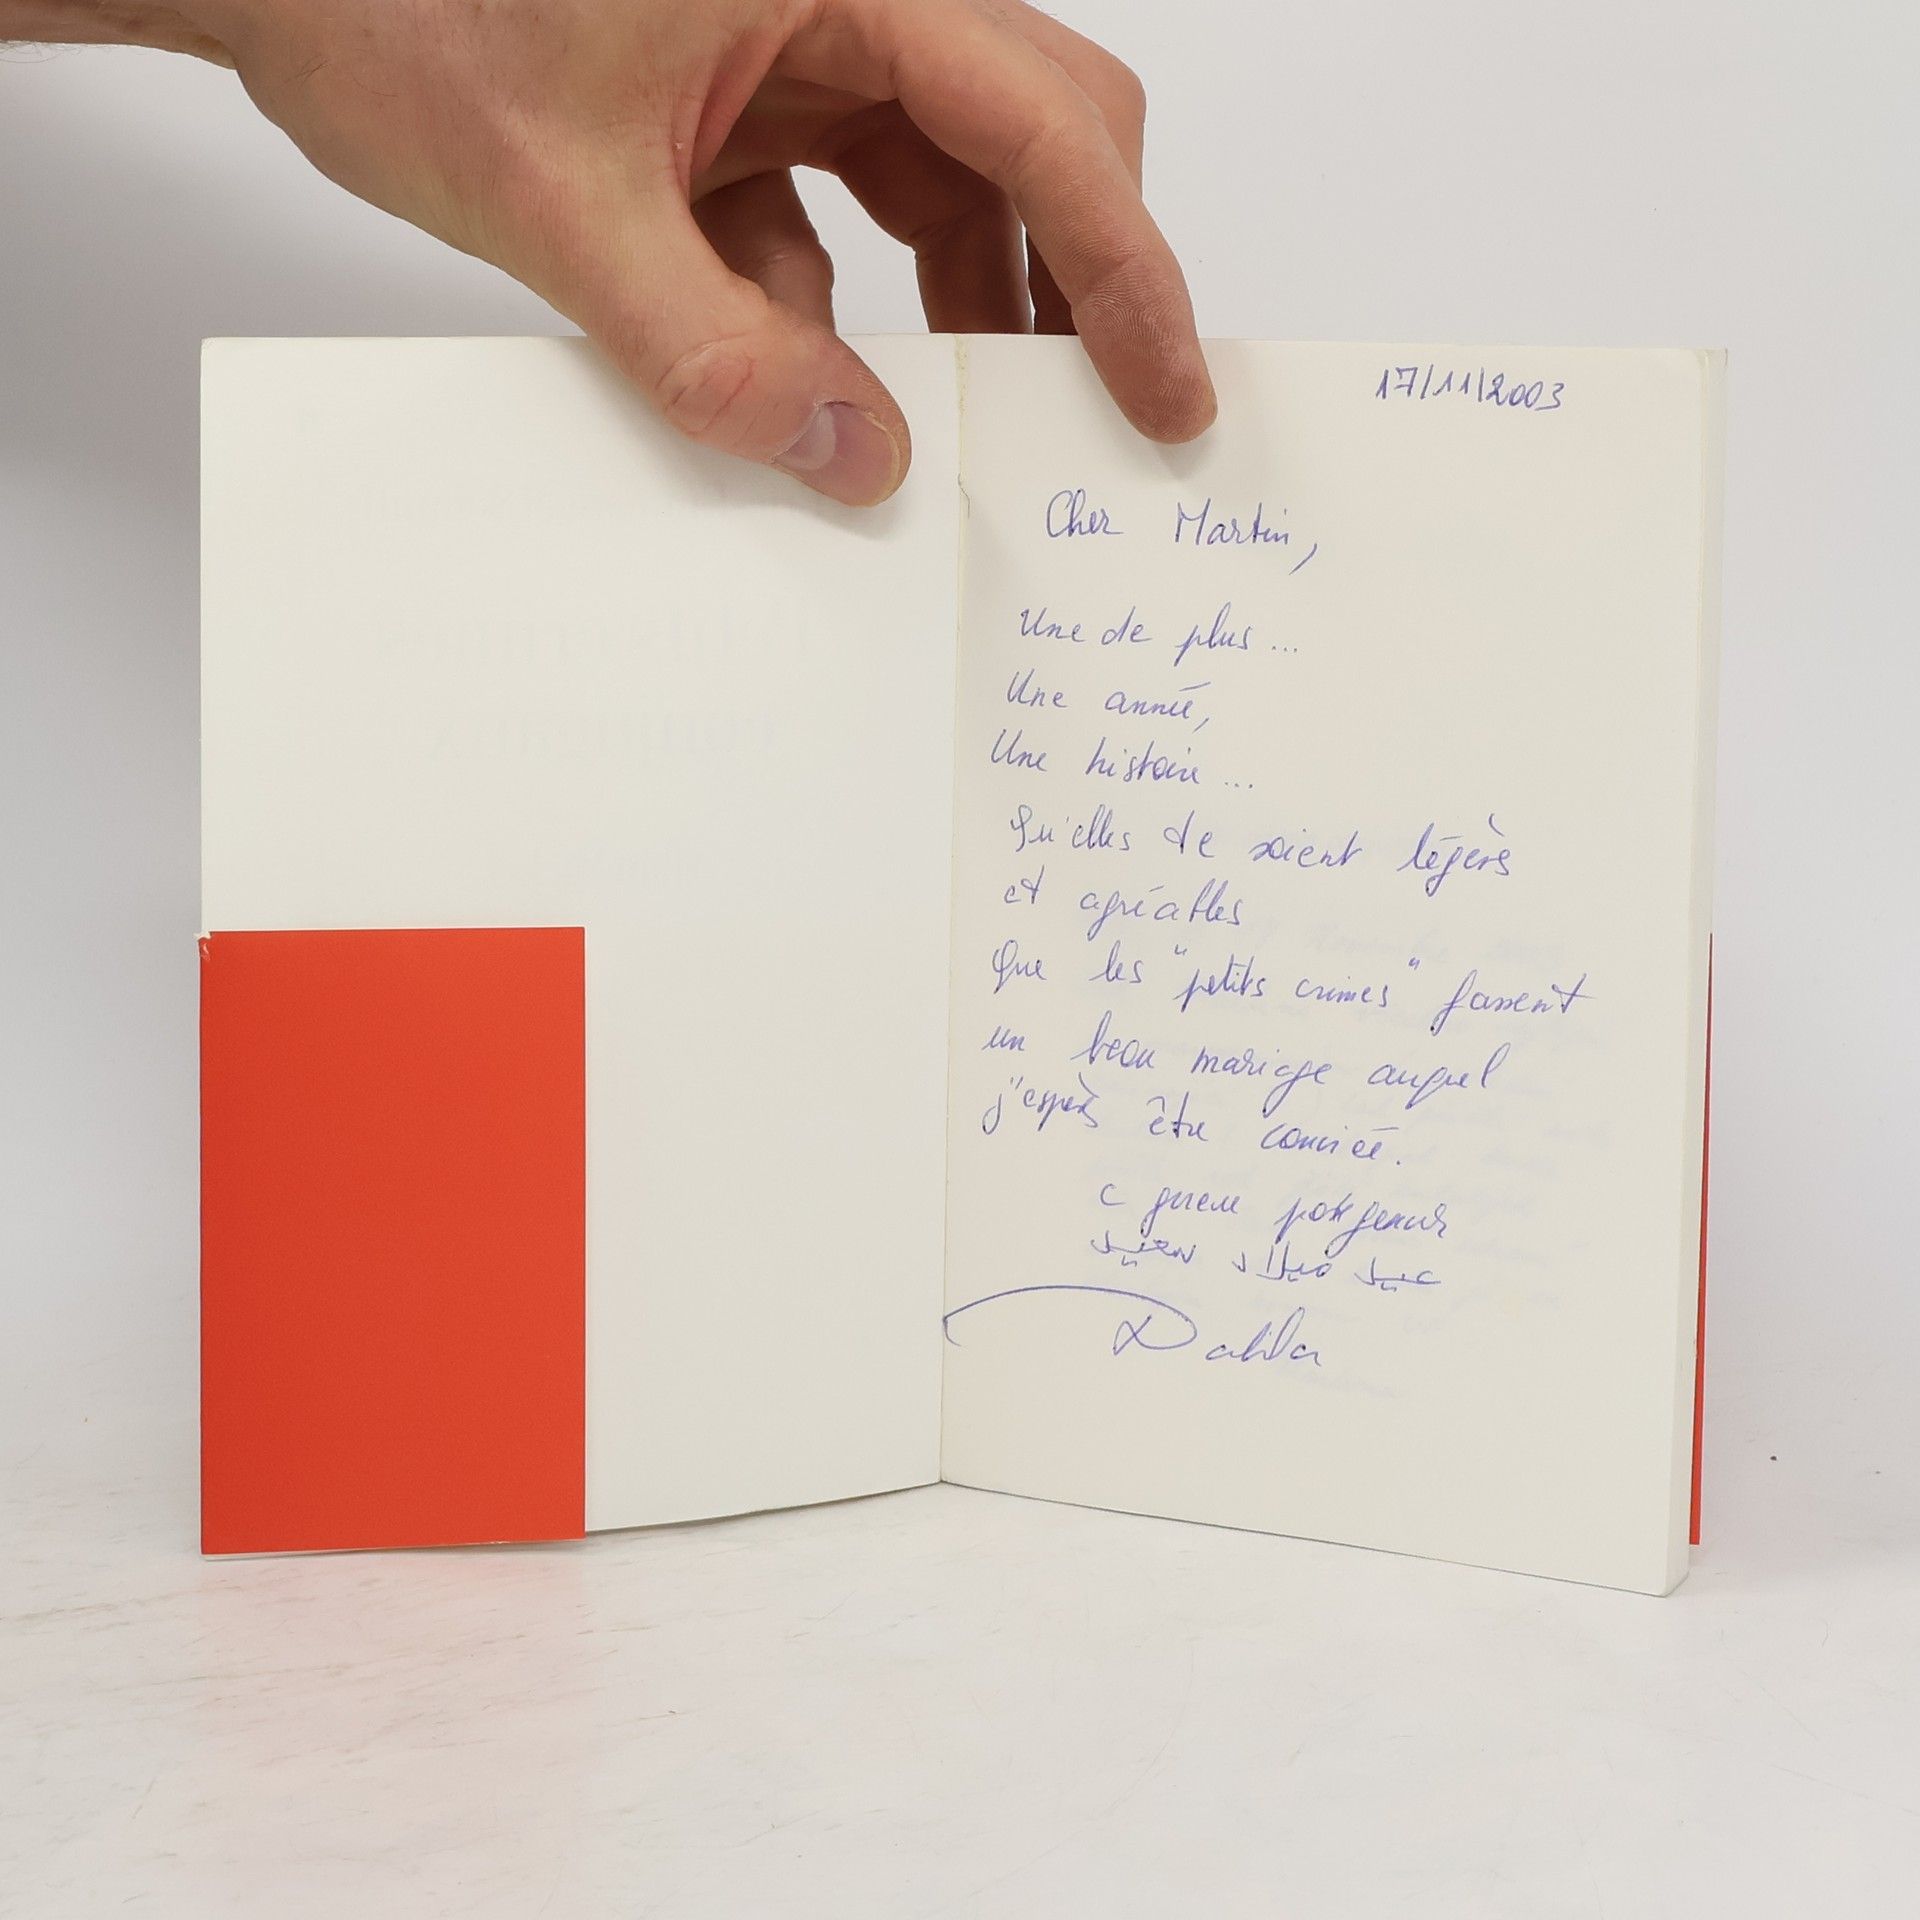 17/11/2003
Cher Martin,
Une de plus ...
Une année,
Une histoire ...
Qu'elles te soient légères
et agréables
Que les "petits crimes" fassent
un beau mariage auquel
j'espère être conviée.
с днем рождения
عيد ميلاد سعيد
Dalila